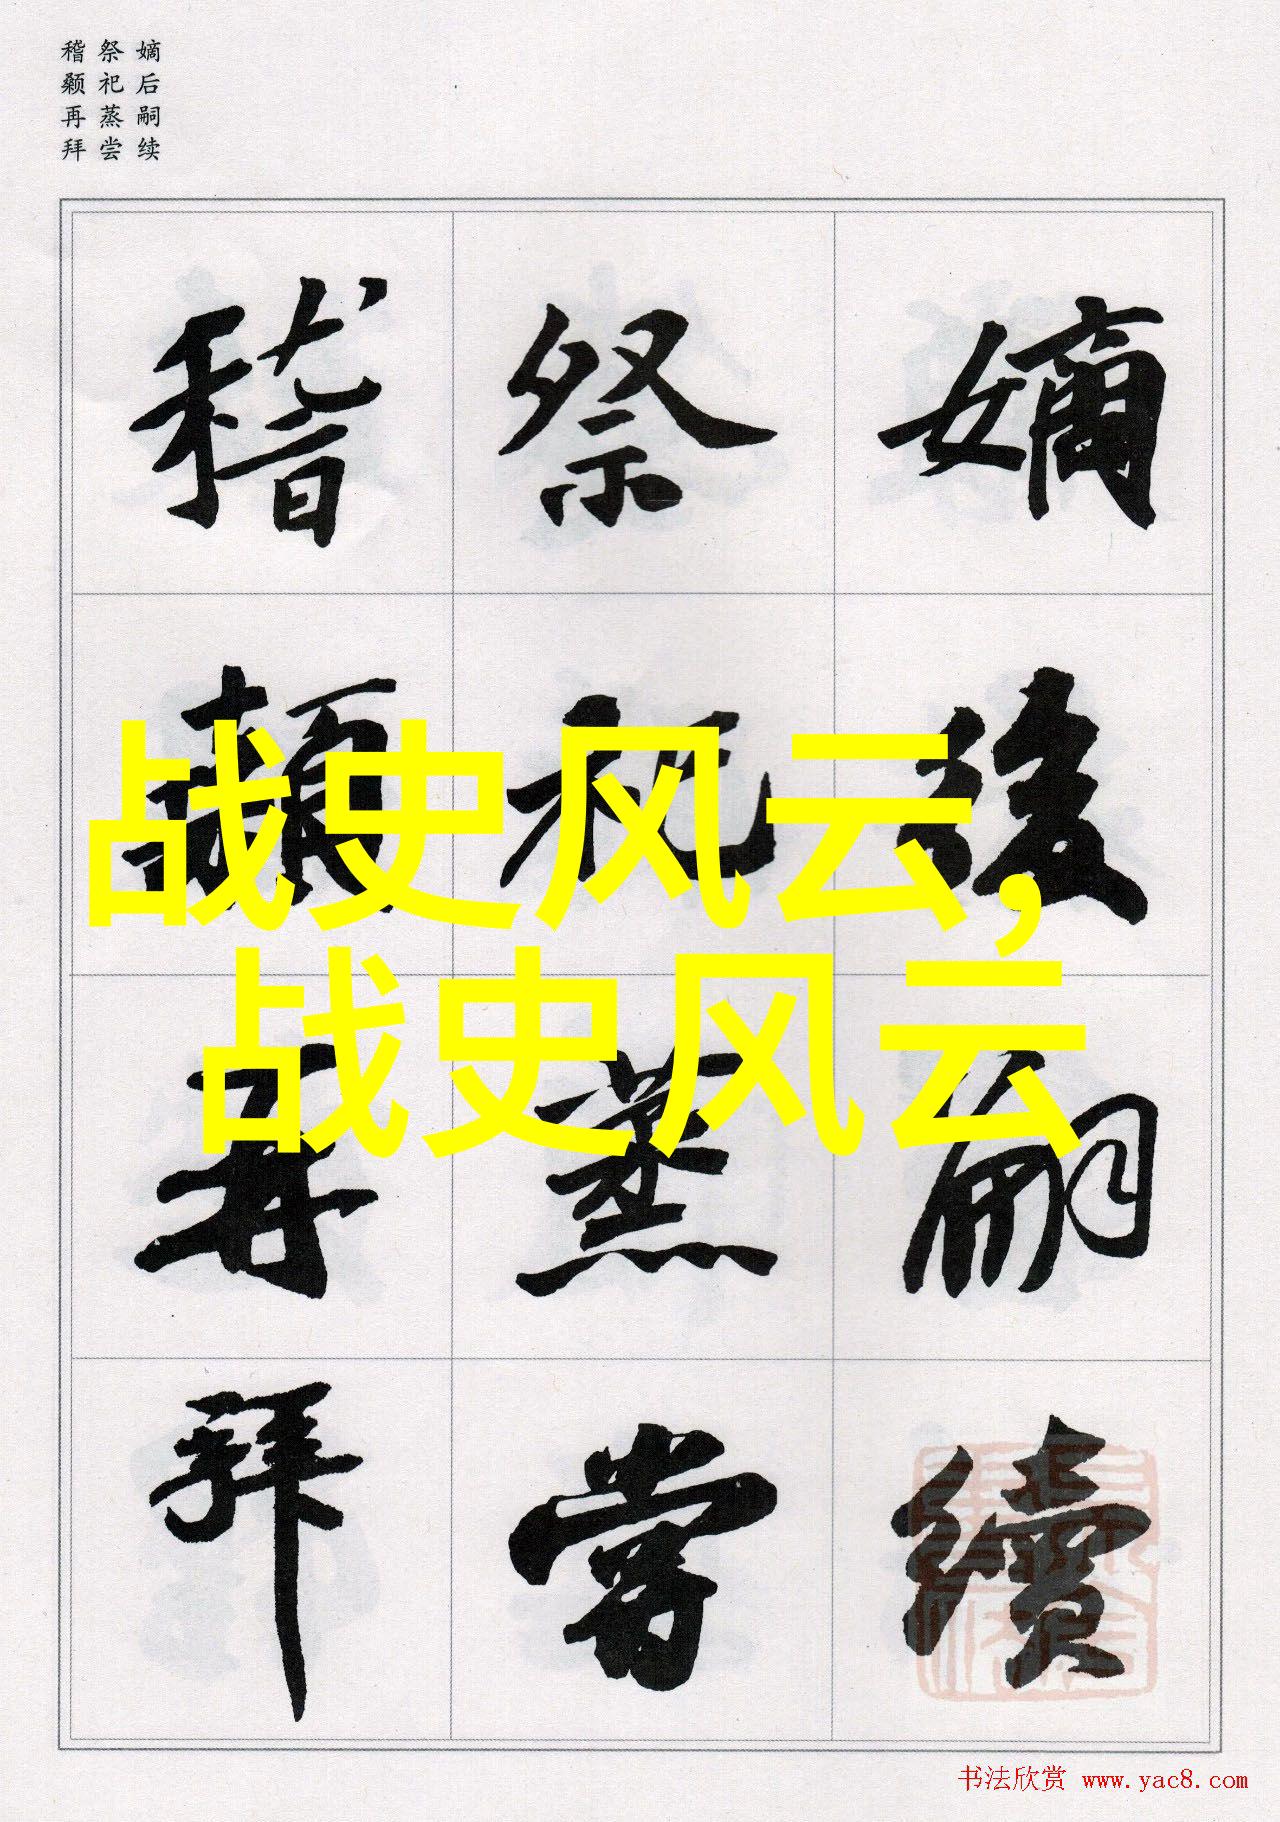 嫡后嗣续
祭祀蒸尝
稽颡再拜
嫡後嗣續
祭祀蒸嘗
稽顙再拜
战史风云，
战史风云
书法欣赏 www.yac8.com